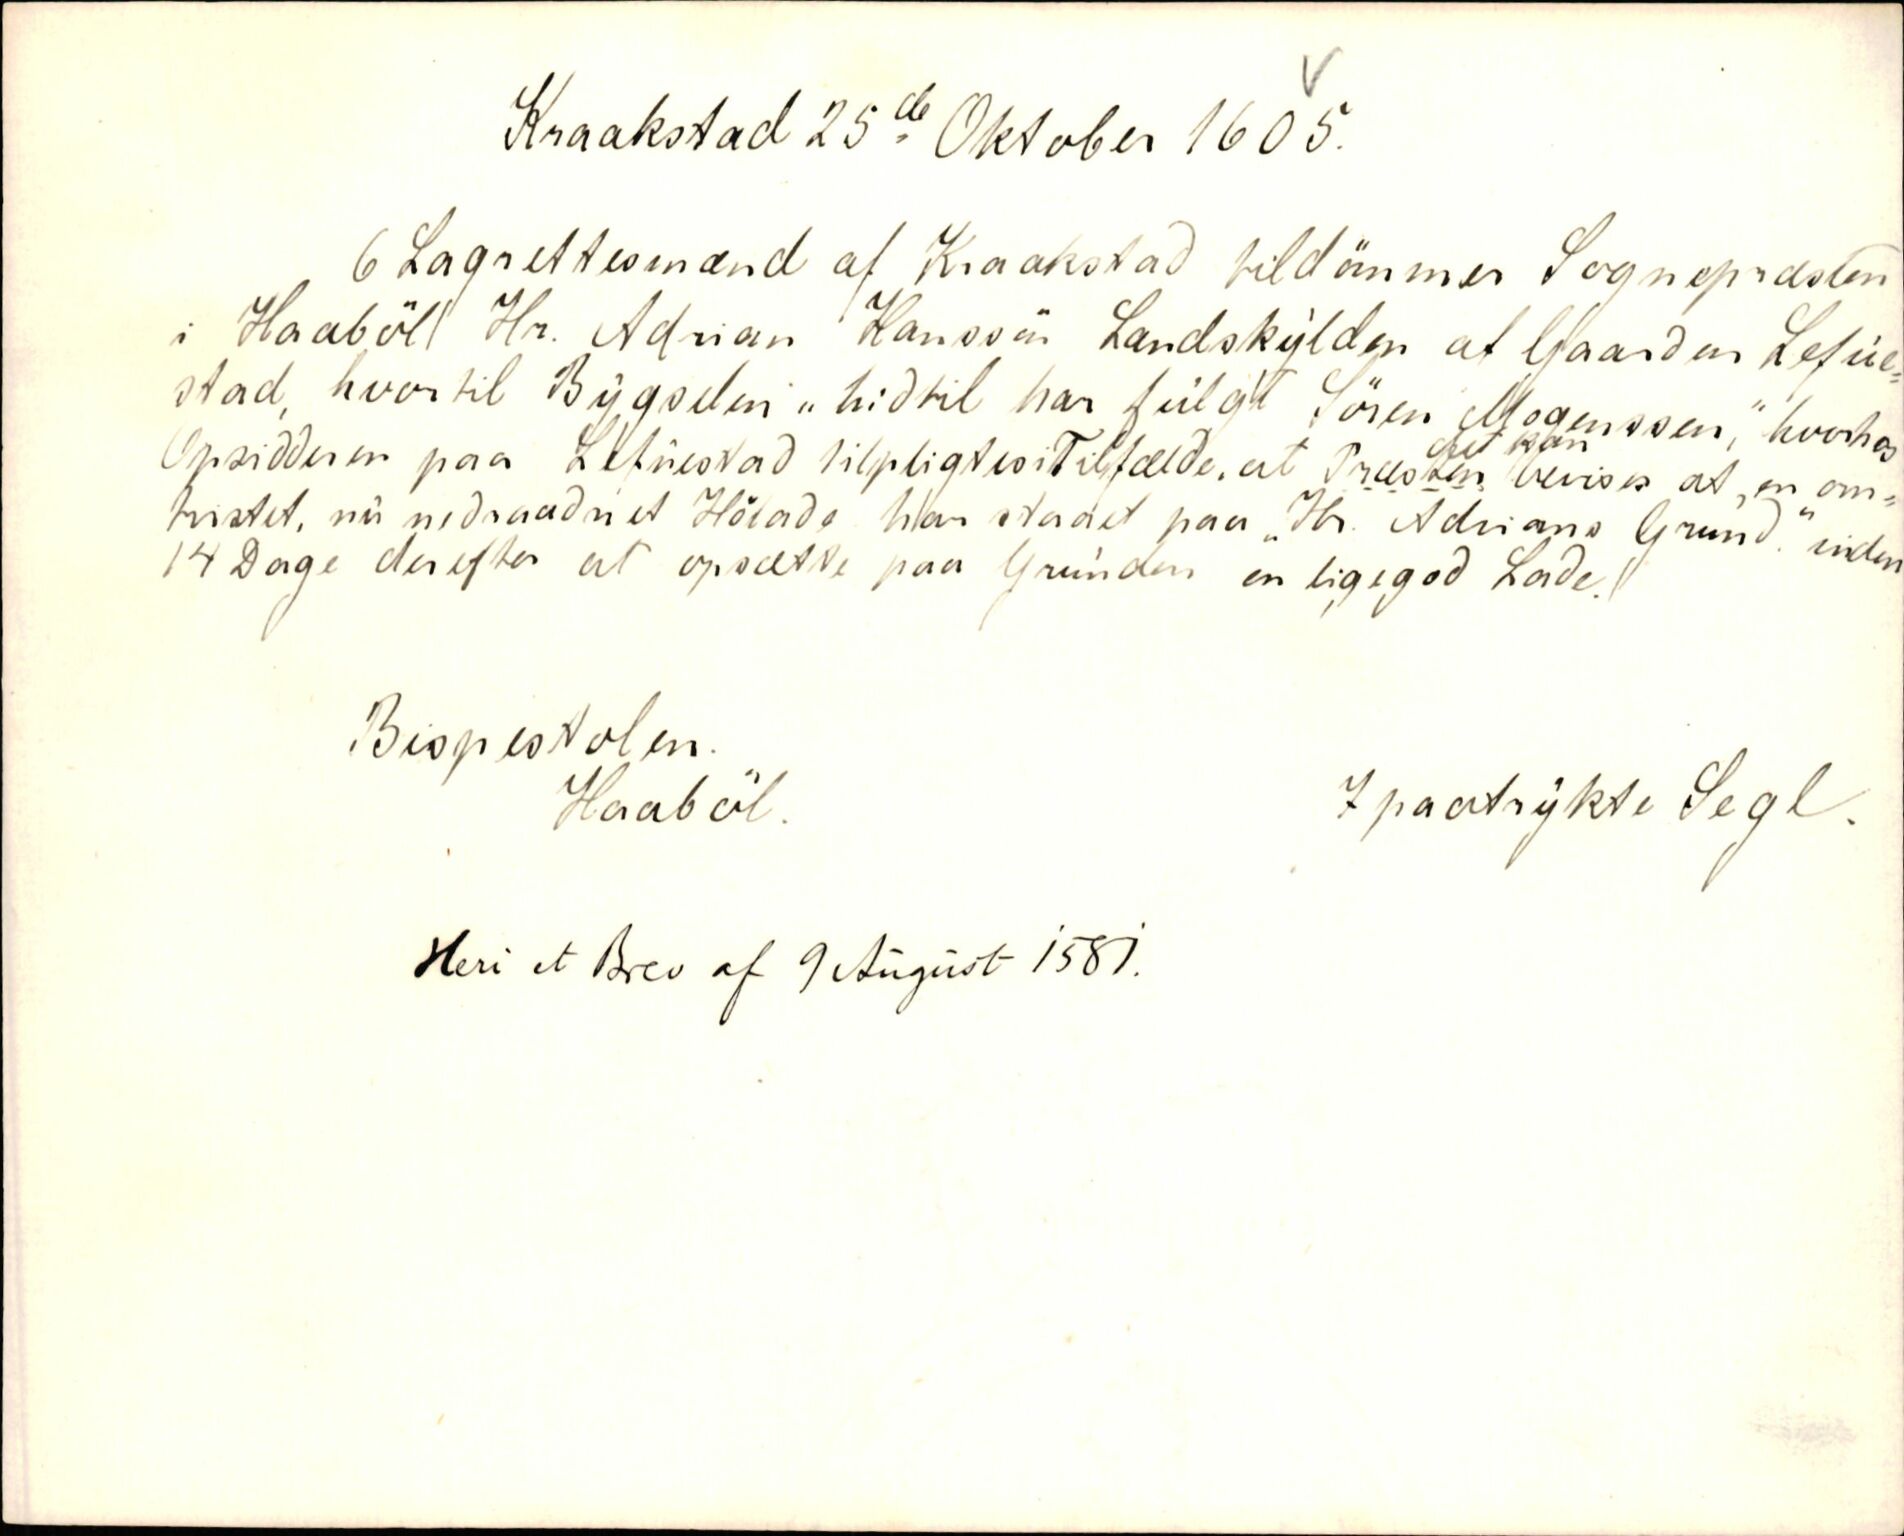 Kraakstad 25de Oktober 1605.
6 Lagrettesmænd af Kraakstad tildömmer Sognepræsten
i Haaböl Hr. Adrian Hanssön Landskylden af Gaarden Lefue-
stad, hvortil Bygselen „hidtil har fulgt Sören Mogenssen,“ hvorhos
det kan
Opsidderen paa Lefuestad tilpligtes i Tilfælde, at Præsten beviser at „en om-
tvistet, nu nedraadnet Hölade har staaet paa „Hr. Adrians Grund,“ inden
14 Dage derefter at opsætte paa Grunden en ligegod Lade.
Bispestolen.
Haaböl.
7 paatrykte Segl.
Heri et Brev af 9 August 1581.